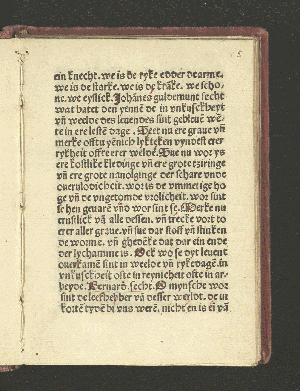 5
ein knecht. we is de ryke edder de arme.
we is de starke. we is de kräke. we scho
ne. we eyslick. Johānes guldemunt secht
wat batet den yenne de in vnkuscheyt
vn̄ weelde des leuendes sint gebleuē
te in ere lestē dage. Seet nu ere graue vn̄
merke offtu yēnich lykteken vyndest erer
rykheit offte erer welde. Sue nu wor ys
ere kostlike kledinge vn̄ ere grote tziringe
vn̄ ere grote nauolginge der schare vnde
oueruloedicheit. wor is de vmmetige ho
ge vn̄ de vngetomde vrolicheit. wor sint
se hen geuarē vn̄d wor sint se. Merke nu
ernstlick vā alle dessen. vn̄ trecke vort to
erer aller graue. vn̄ sue dar stoff vn̄ stinken
de worme. vn̄ ghedēke dat dar ein ende
der lychamme is. Ock wo se dyt leuent
ouerkamē sint in weelde vn̄ rykedage. in
vnkuscheit ofte in reynicheit ofte in ar
beyde. Bernard9 secht. O mynsche wor
sint de leefhebber vā desser werldt. de in
kortē tydē bi vns werē. nicht en is ēn vā